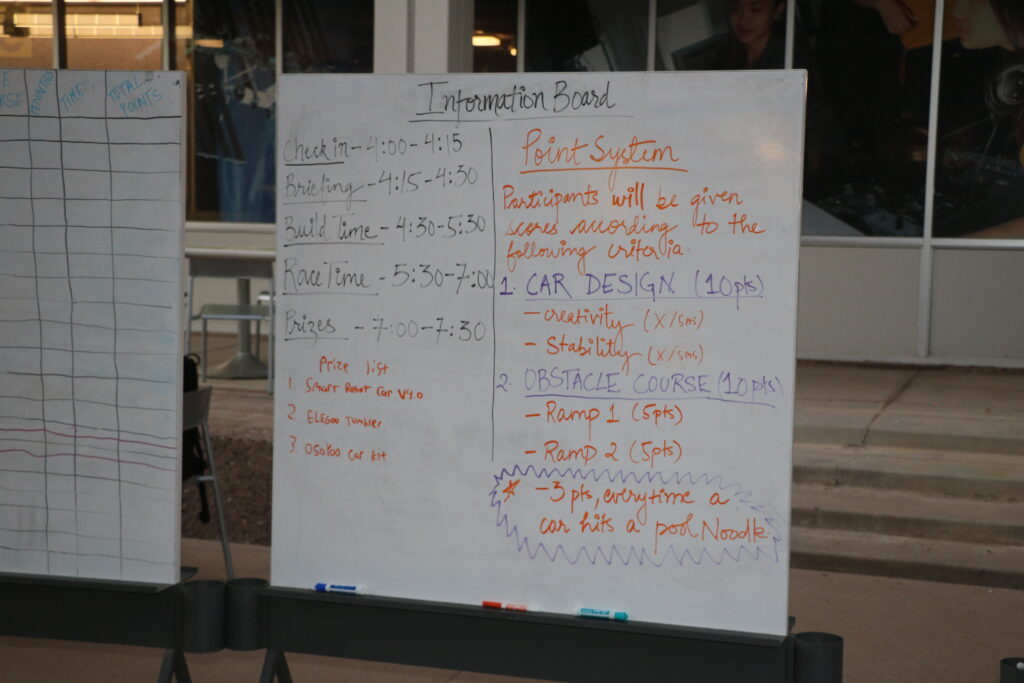 RSE
PENALTIES
TIME
TOTAL
POINTS
Information Board
Check in - 4:00 - 4:15
Briefing - 4:15 - 4:30
Build Time - 4:30 - 5:30
Race Time - 5:30 - 7:00
Prizes - 7:00 - 7:30
Prize list
1. Smart Robot Car V4.0
2 ELEGOO Tumbler
3. Osoyoo car kit
Point System
Participants will be given
scores according to the
following criteria.
1. CAR DESIGN (10pts)
- creativity (X/5pts)
- Stability (X/5pts)
2. OBSTACLE COURSE (10pts)
- Ramp 1 (5pts)
- Ramp 2 (5pts)
* -3 pts, everytime a
car hits a pool Noodle.